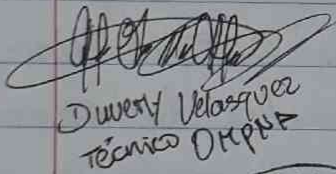 Duverly Velasquez
Técnico OMPNA